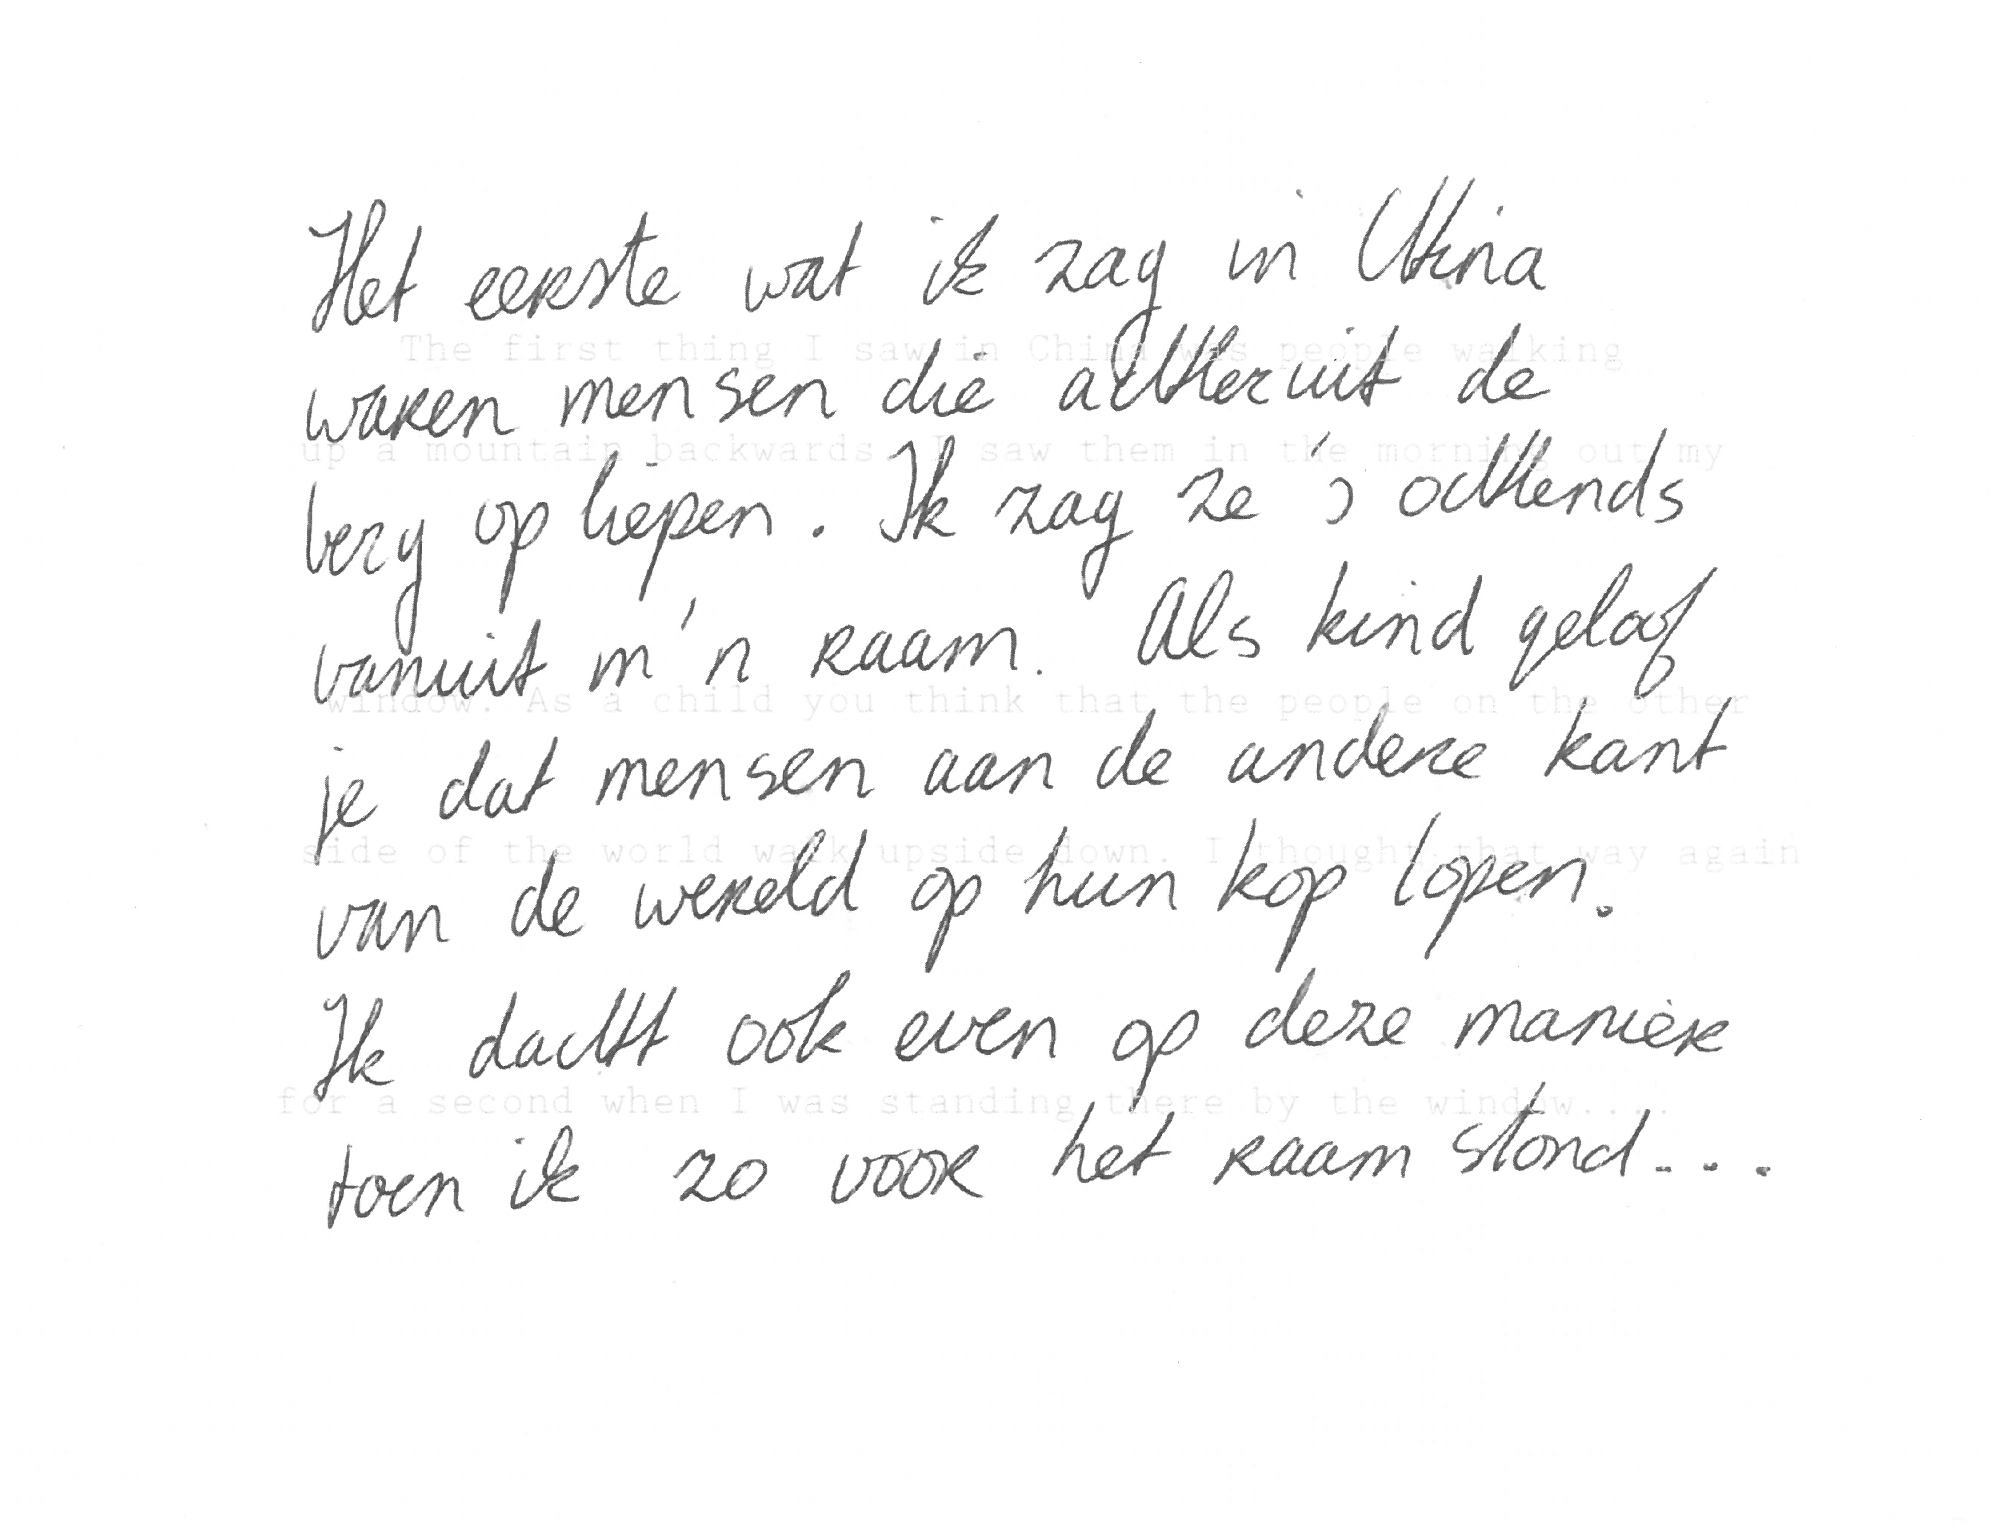 Het eerste wat ik zag in China
The first thing I saw in China was people walking
waren mensen die achteruit de
up a mountain backwards. I saw them in the morning out my
berg op liepen. Ik zag ze 's ochtends
vanuit m'n raam. Als kind geloof
window. As a child you think that the people on the other
je dat mensen aan de andere kant
side of the world walk upside down. I thought that way again
van de wereld op hun kop lopen.
Ik dacht ook even op deze manier
for a second when I was standing there by the window....
toen ik zo voor het raam stond....